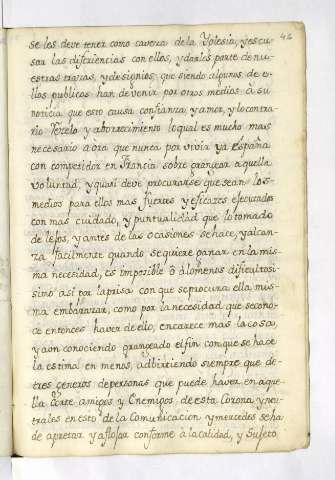 42
se les deve tener como caveza de la Yglesia, y escu-
sar las diferiencias con ellos, y darles parte de nu-
estras trazas, y designios, que siendo algunos de e-
llos publicos han de venir por otros medios á su
noticia que esto causa confianza, y amor, y lo contra-
rio rezelo y aborrecimiento lo qual es mucho mas
necesario aora que nunca por vivir ya España
con competidor en Francia sobre grangear aquella
voluntad, y quasi deve procurarse que sean los
medios para ellos mas fuertes y eficazes executados
con mas cuidado, y puntualidad que lo tomado
de lejos, y antes de las ocasiones se hace, y alcan-
za facilmente quando se quiere ganar en la mis-
ma necesidad, es imposible ó á lo menos dificultosi-
simo asi por la prisa con que se procura ella mis-
ma embarazar, como por la necesidad que se cono-
ce entonces haver de ello, encarece mas la cosa,
y aun conociendo grangeado el fin con que se hace
la estima en menos, adbirtiendo siempre que de
tres generos de personas que puede haver en aque-
lla Corte amigos y Enemigos de esta Corona y neu-
trales en esto de la Comunicacion y mercedes se ha
de apretar y aflojar conforme á la calidad, y Sujeto